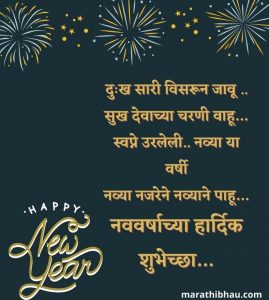 दुःख सारी विसरून जावू ..
सुख देवाच्या चरणी वाहू...
स्वप्ने उरलेली.. नव्या या
वर्षी
नव्या नजरेने नव्याने पाहू...
नववर्षाच्या हार्दिक
शुभेच्छा...
HAPPY
New
Year
marathibhau.com